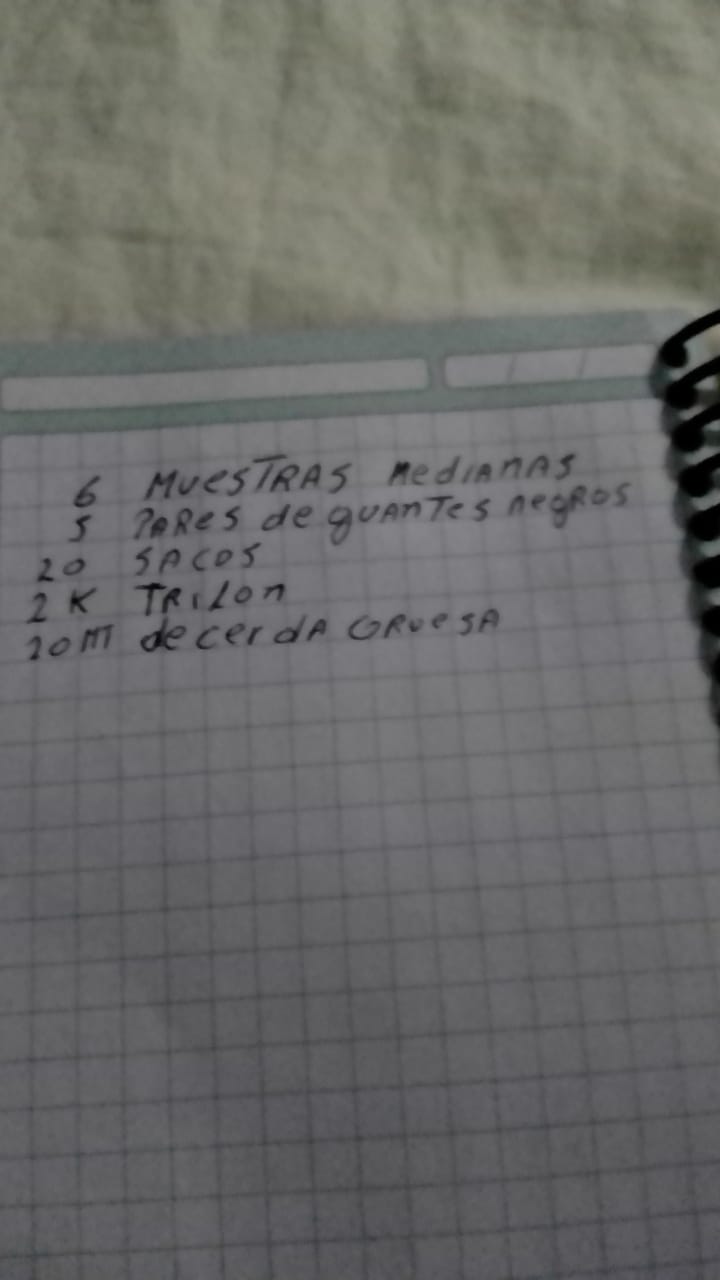 6 MUESTRAS MEDIANAS
5 PARES de guANTES NEGROS
20 SACOS
2 K TRILON
20 MT de cerdA GRUESA